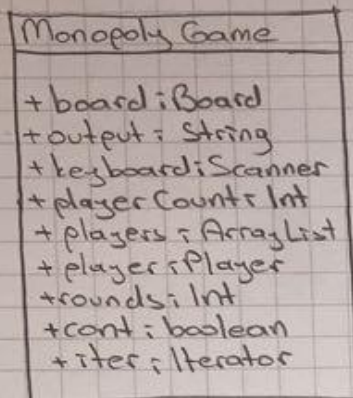 Monopoly Game
+ board : Board
+ output : String
+ keyboard : Scanner
+ playerCount : Int
+ players : ArrayList
+ player : Player
+ rounds : Int
+ cont : boolean
+ iter : Iterator